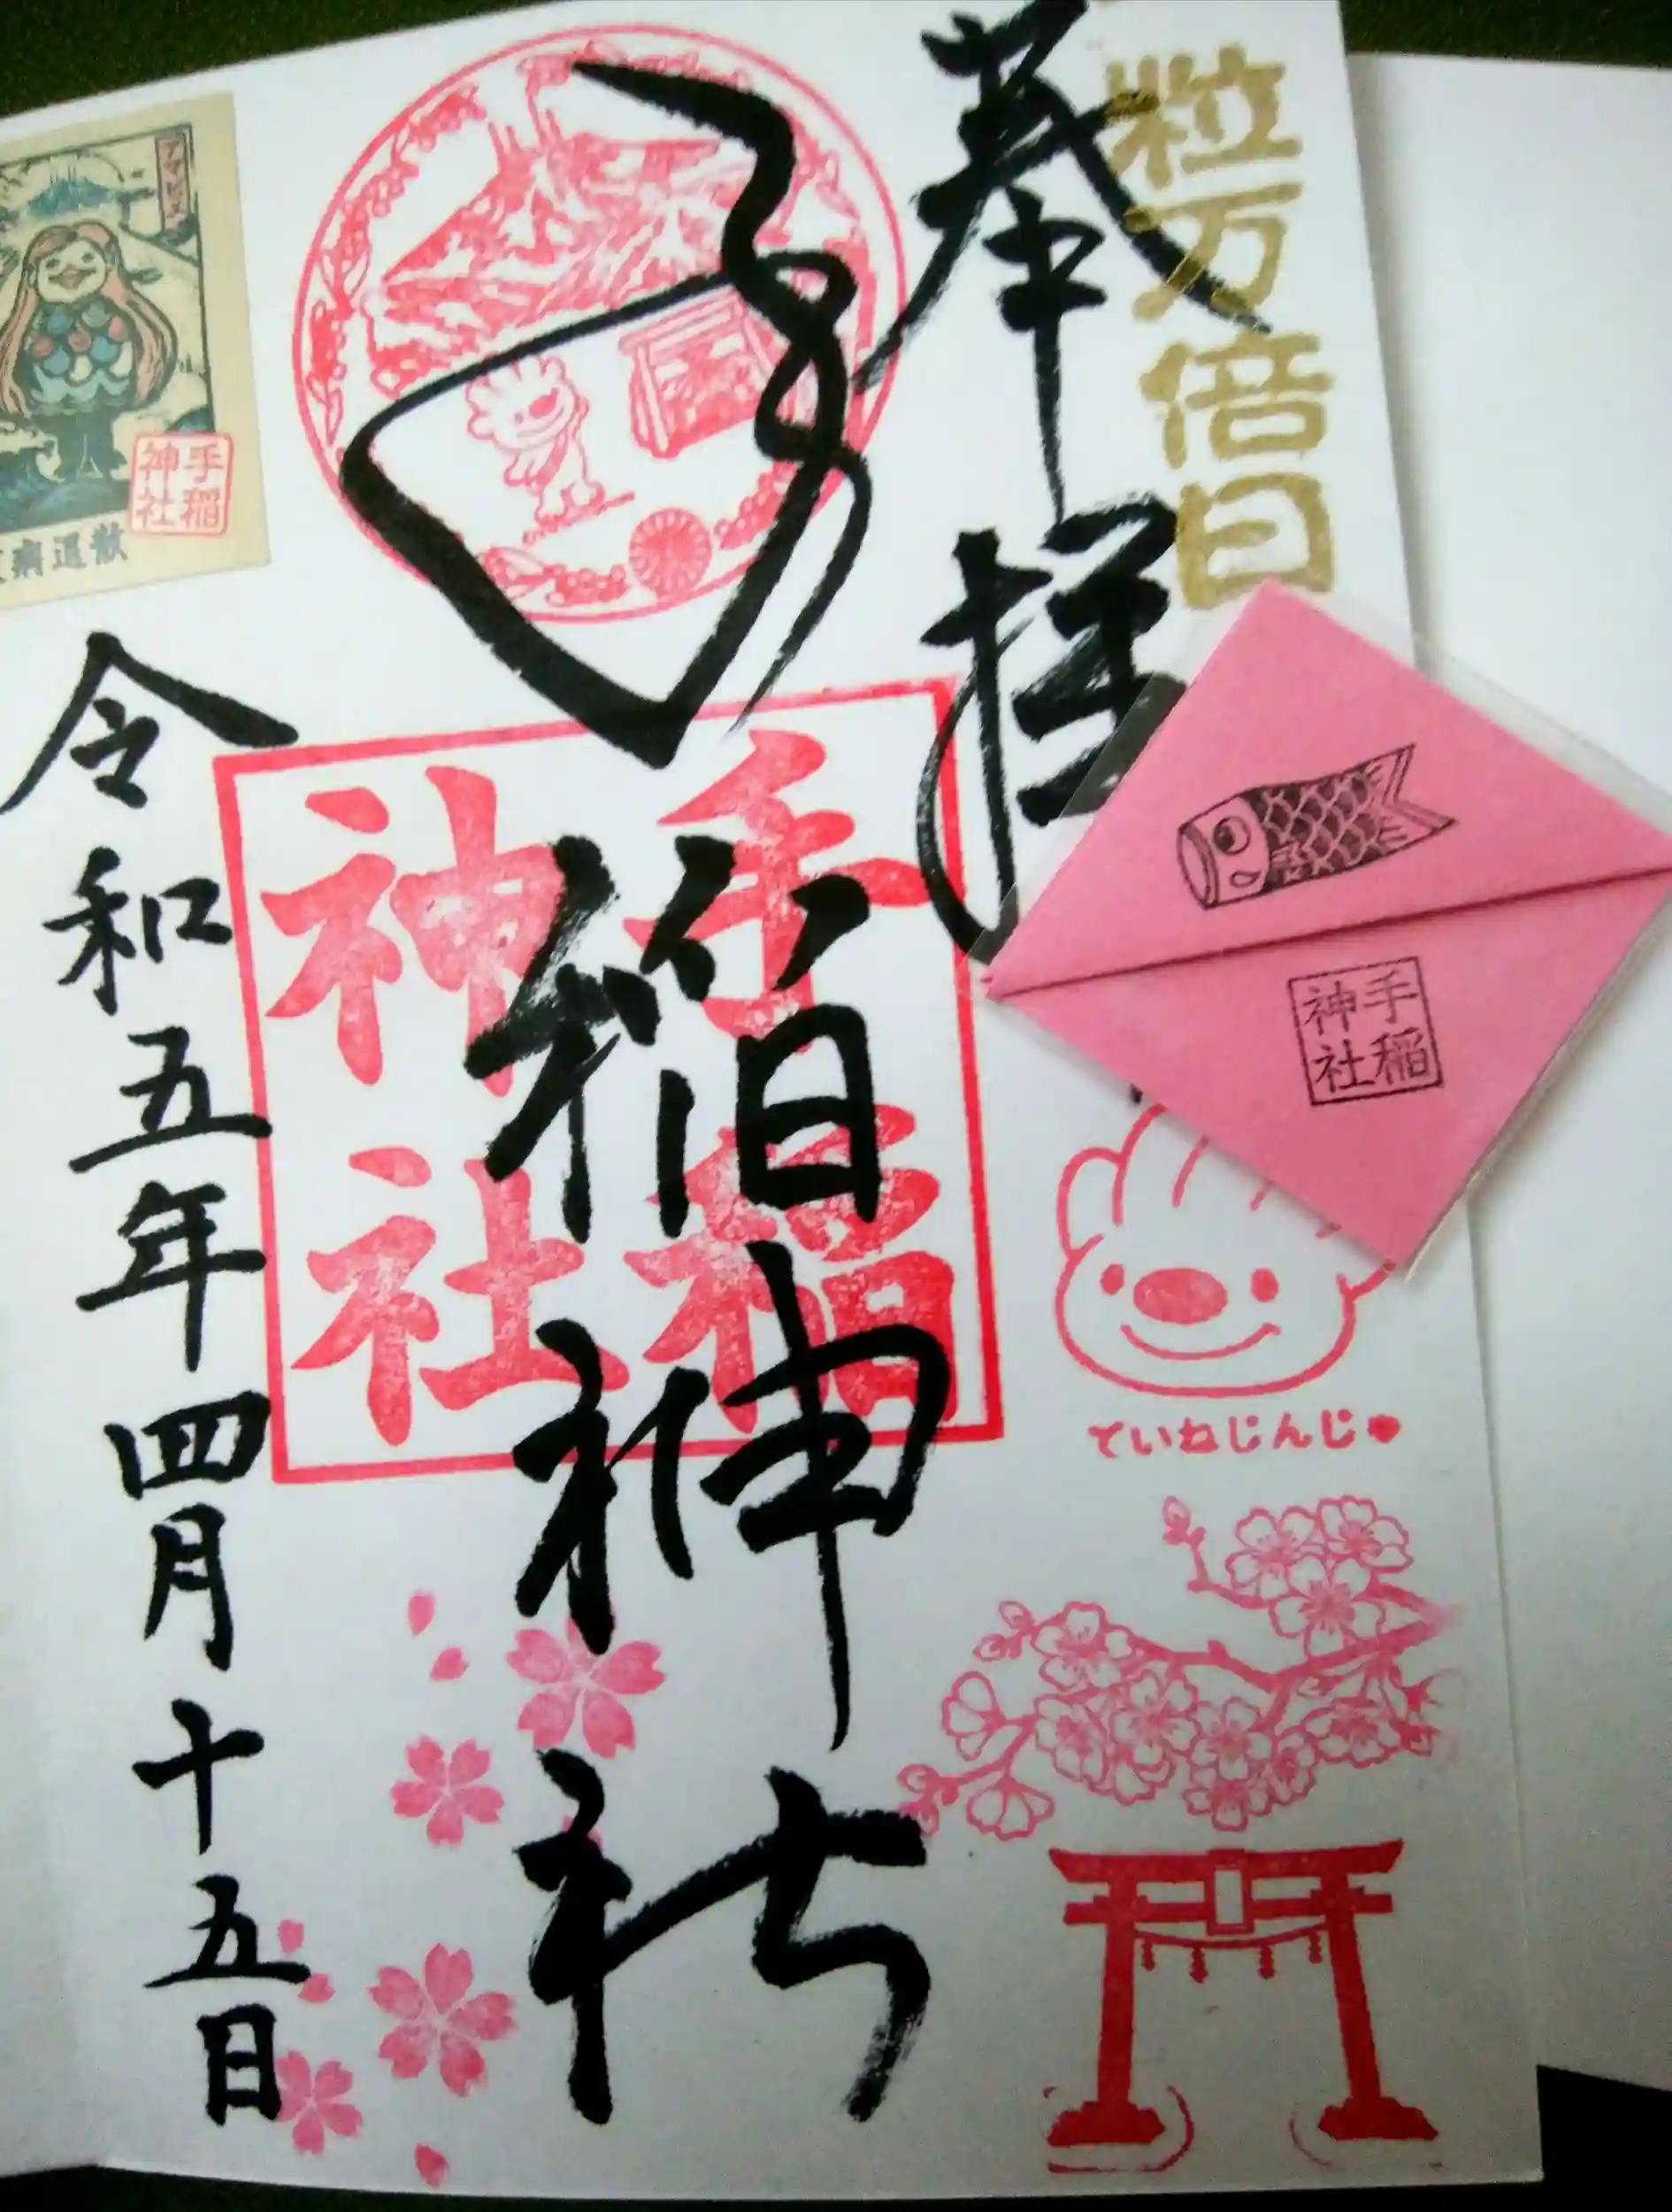 粒万倍日
奉拝
手稲
神社
ていねじんじ
手稲神社
手稲
神社
令和五年四月十五日
アマビエ
手稲
神社
病退散